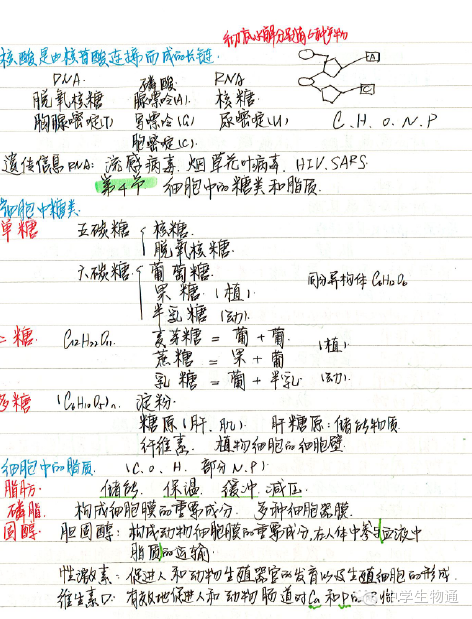 初步水解分别得4种产物
核酸是由核苷酸连接而成的长链
A
C
DNA 磷酸 RNA
脱氧核糖 腺嘌呤(A) 核糖
胸腺嘧啶(T) 鸟嘌呤(G) 尿嘧啶(U) C.H.O.N.P
胞嘧啶(C)
遗传信息RNA: 流感病毒. 烟草花叶病毒. HIV. SARS
第4节 细胞中的糖类和脂质.
细胞中糖类
单糖 五碳糖 核糖
脱氧核糖
六碳糖 葡萄糖 同分异构体 C6H12O6
果糖 (植)
半乳糖 (动)
二糖 C12H22O11 麦芽糖 = 葡 + 葡
蔗糖 = 果 + 葡 (植)
乳糖 = 葡 + 半乳 (动).
多糖 (C6H10O5)n. 淀粉.
糖原(肝.肌). 肝糖原: 储能物质
纤维素. 植物细胞的细胞壁
细胞中的脂质. (C.O.H. 部分N.P).
脂肪. 储能. 保温. 缓冲 减压.
磷脂. 构成细胞膜的重要成分. 多种细胞器膜.
固醇: 胆固醇: 构成动物细胞膜的重要成分,在人体中参与血液中
脂质的运输
性激素: 促进人和动物生殖器官的发育以及生殖细胞的形成.
维生素D: 有效地促进人和动物肠道对Ca和P的
学生物通